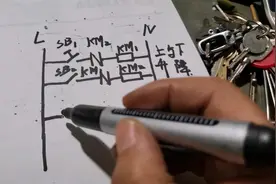 L N
SB₁ KM₂ KM₁ 上升
SB₂ KM₁ KM₂ 下降